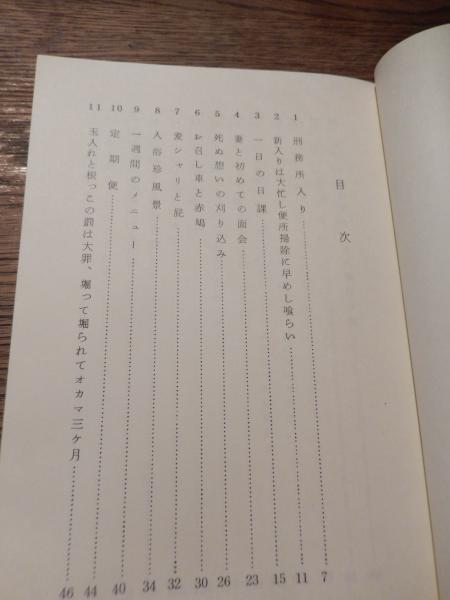 目次
1 刑務所入り 7
2 新入りは大忙し便所掃除に早めし喰らい 11
3 一日の日課 15
4 妻と初めての面会 23
5 死ぬ想いの刈り込み 26
6 お召し車と赤鳩 30
7 麦シャリと屁 32
8 入浴珍風景 34
9 一週間のメニュー 40
10 定期便 44
11 玉入れと根っこの罰は大罪、堀って堀られてオカマ三ケ月 46